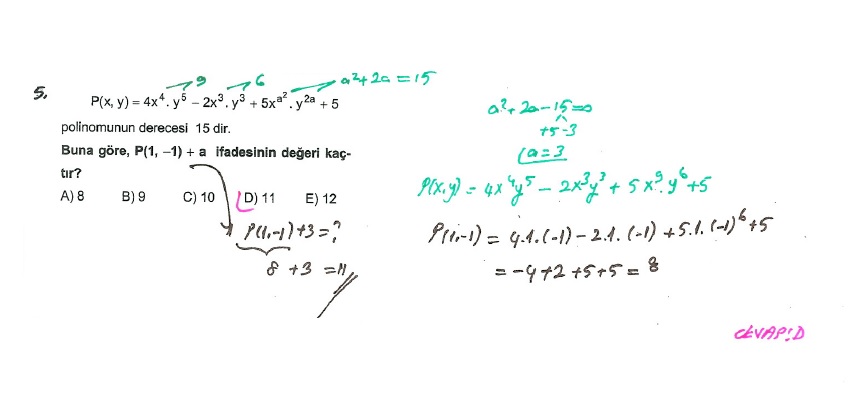 9 6 a²+2a=15
5. P(x, y) = 4x⁴. y⁵ – 2x³. y³ + 5xᵃ². y²ᵃ + 5
polinomunun derecesi 15 dir.
Buna göre, P(1, –1) + a ifadesinin değeri kaç-
tır?
A) 8 B) 9 C) 10 D) 11 E) 12
P(1,-1)+3=?
8 +3 =11
a²+2a-15=0
+5-3
a=3
P(x,y)= 4x⁴y⁵ - 2x³y³ + 5x⁹.y⁶+5
P(1,-1) = 4.1.(-1)-2.1.(-1)+5.1.(-1)⁶+5
= -4+2+5+5= 8
CEVAP:D